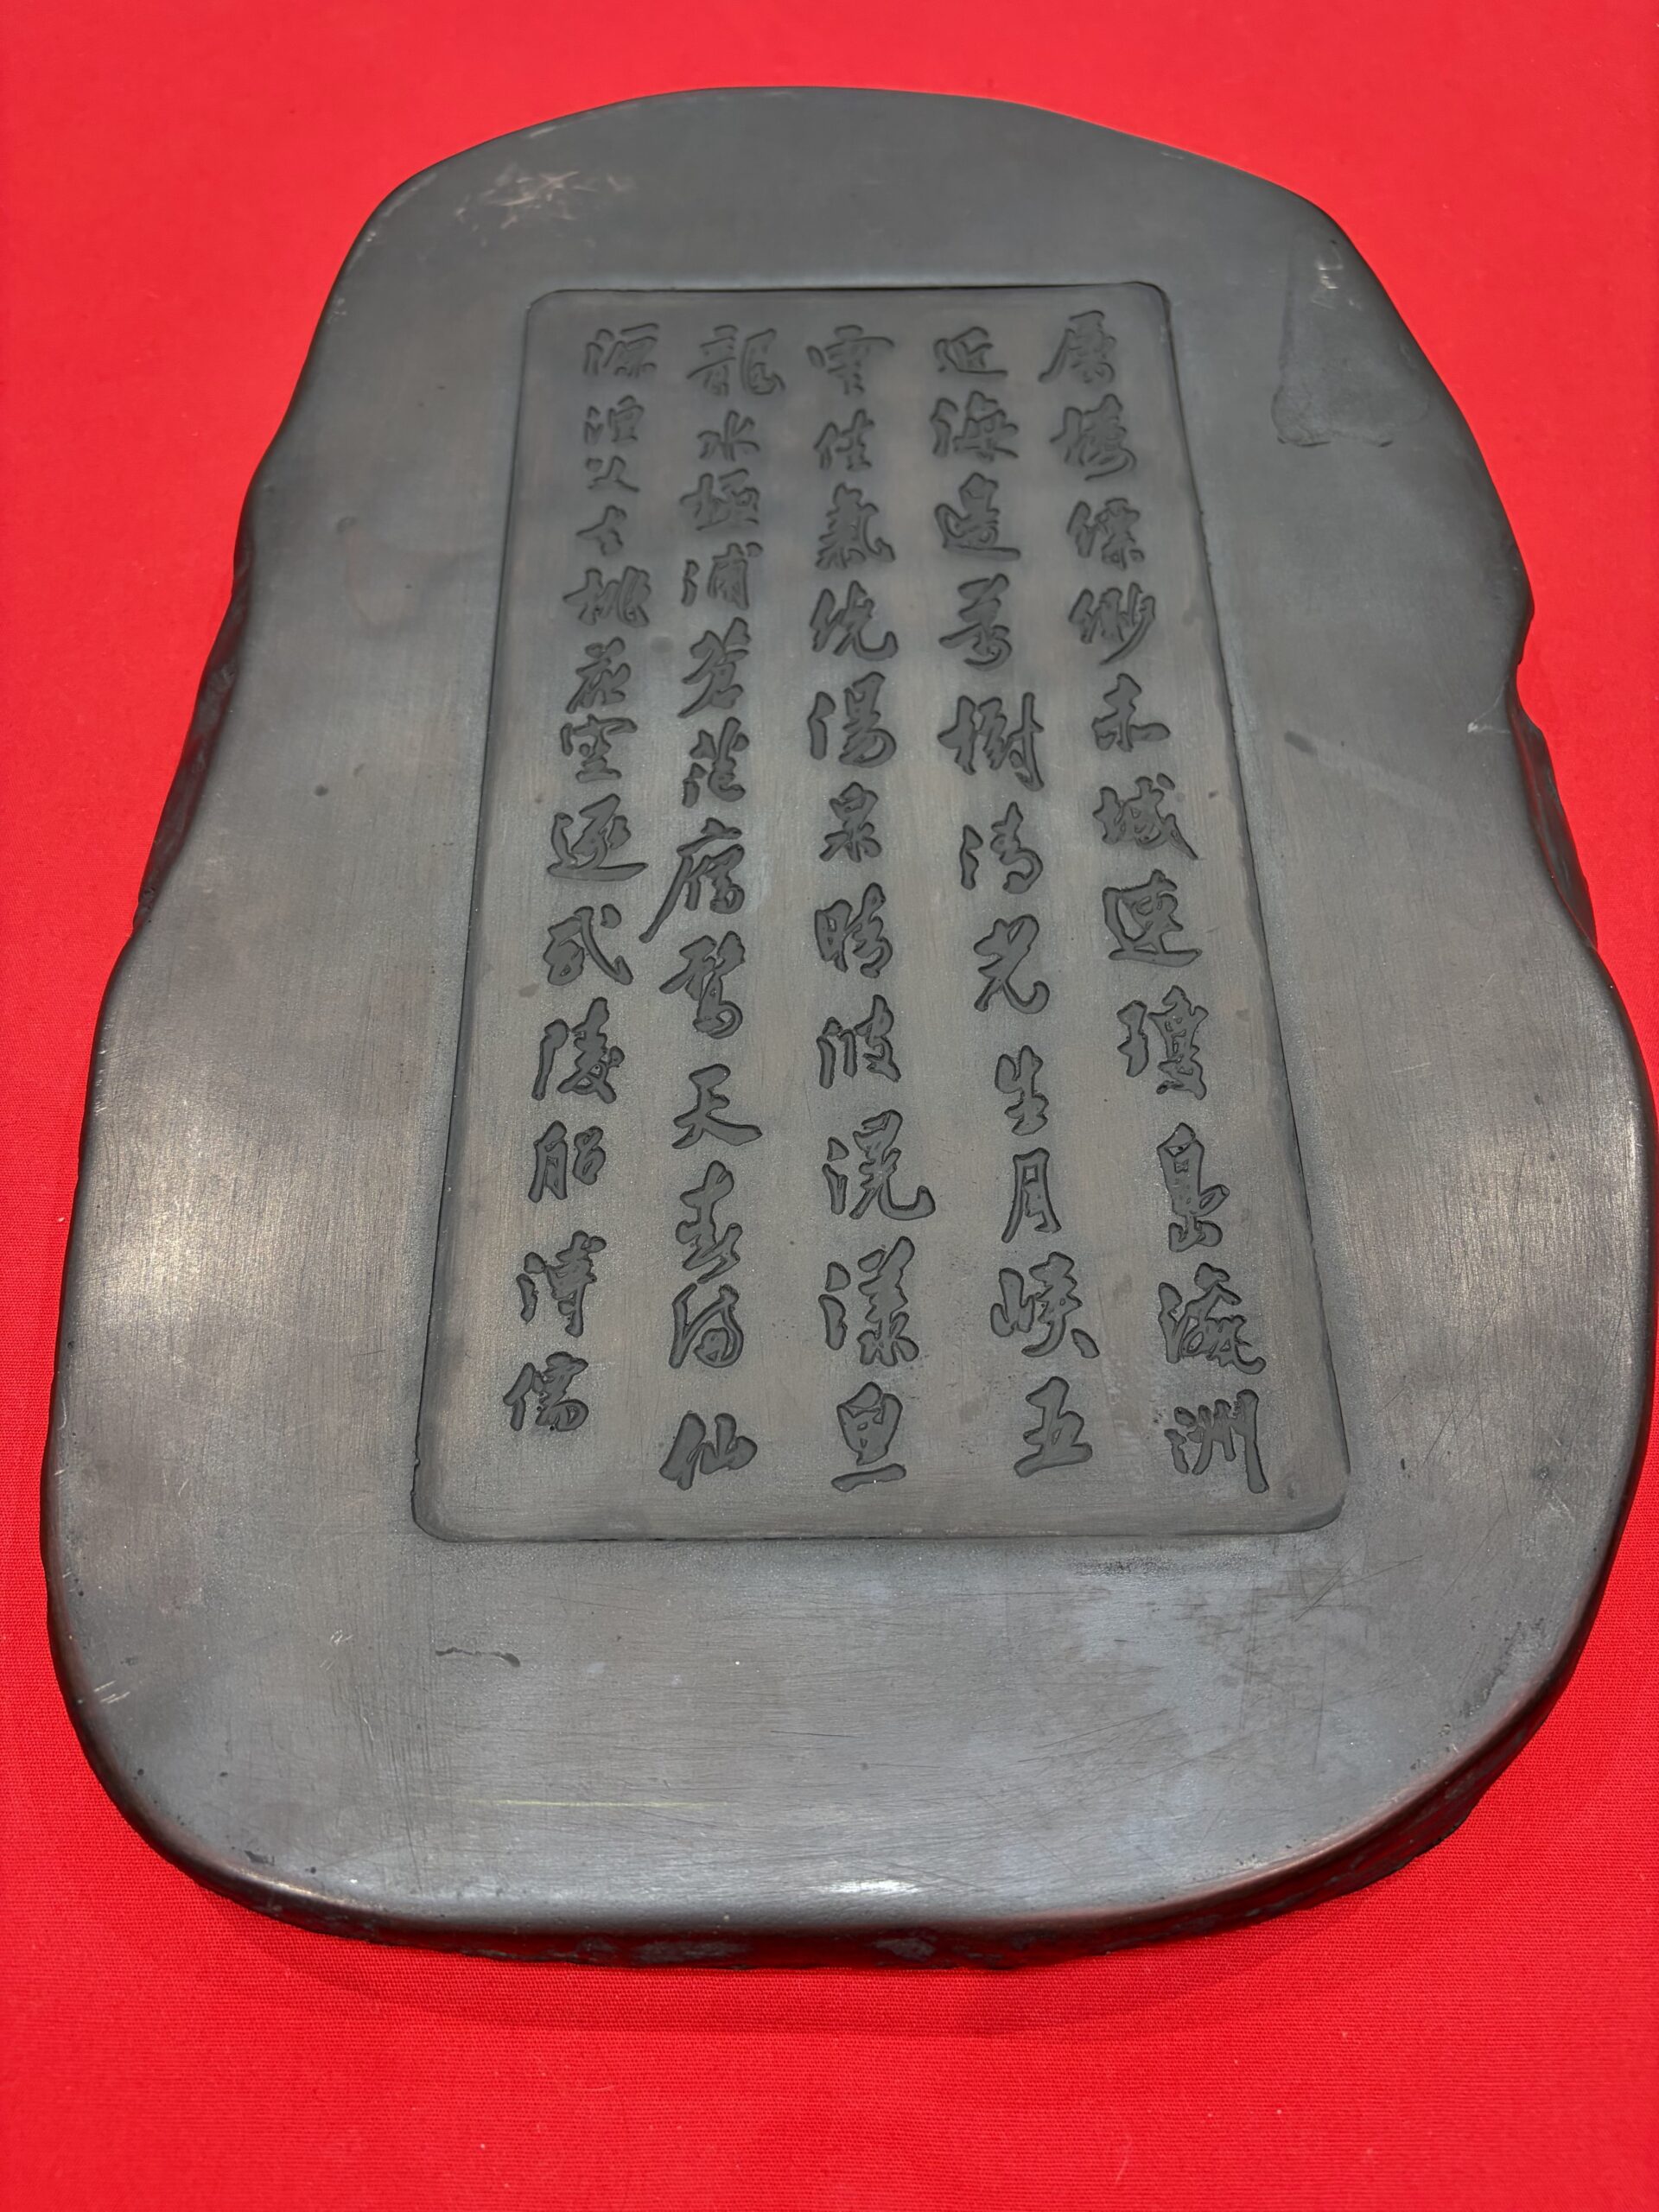 層樓縹緲赤城連瓊島瀛洲
近海邊萬樹清光生月峽五
雲佳氣繞湯泉晴波滉漾魚
龍水極浦蒼茫雁鶩天春滿仙
源漁父去桃花空逐武陵船溥儒